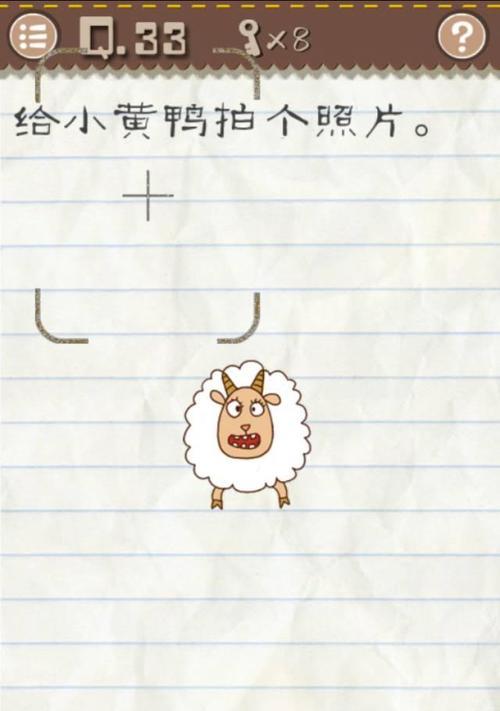 Q.33 ×8 ?
给小黄鸭拍个照片。